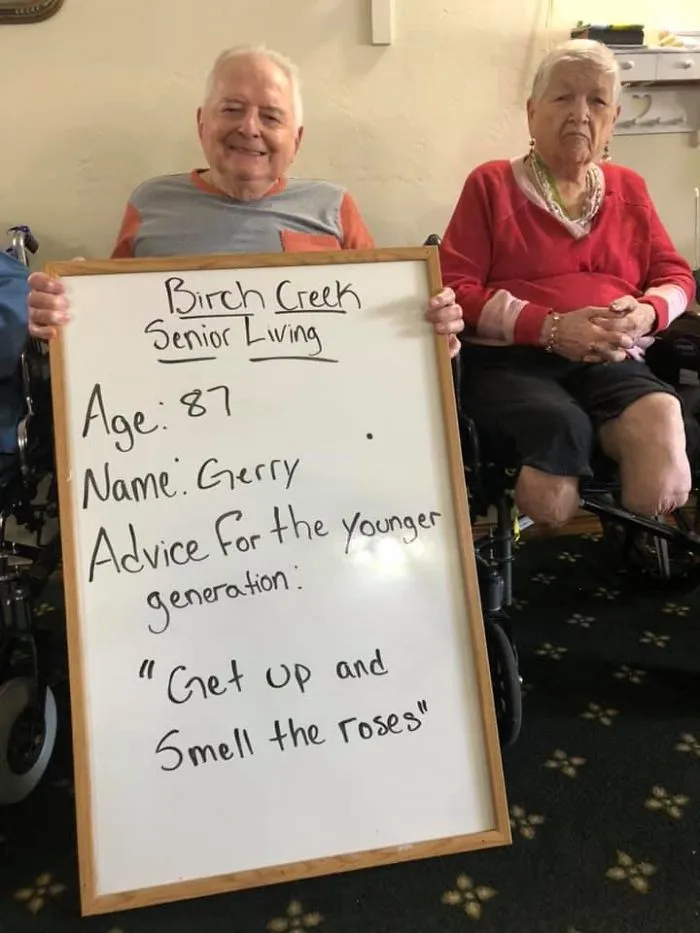 Birch Creek
Senior Living
Age: 87
Name: Gerry
Advice for the younger
generation:
"Get up and
Smell the roses"